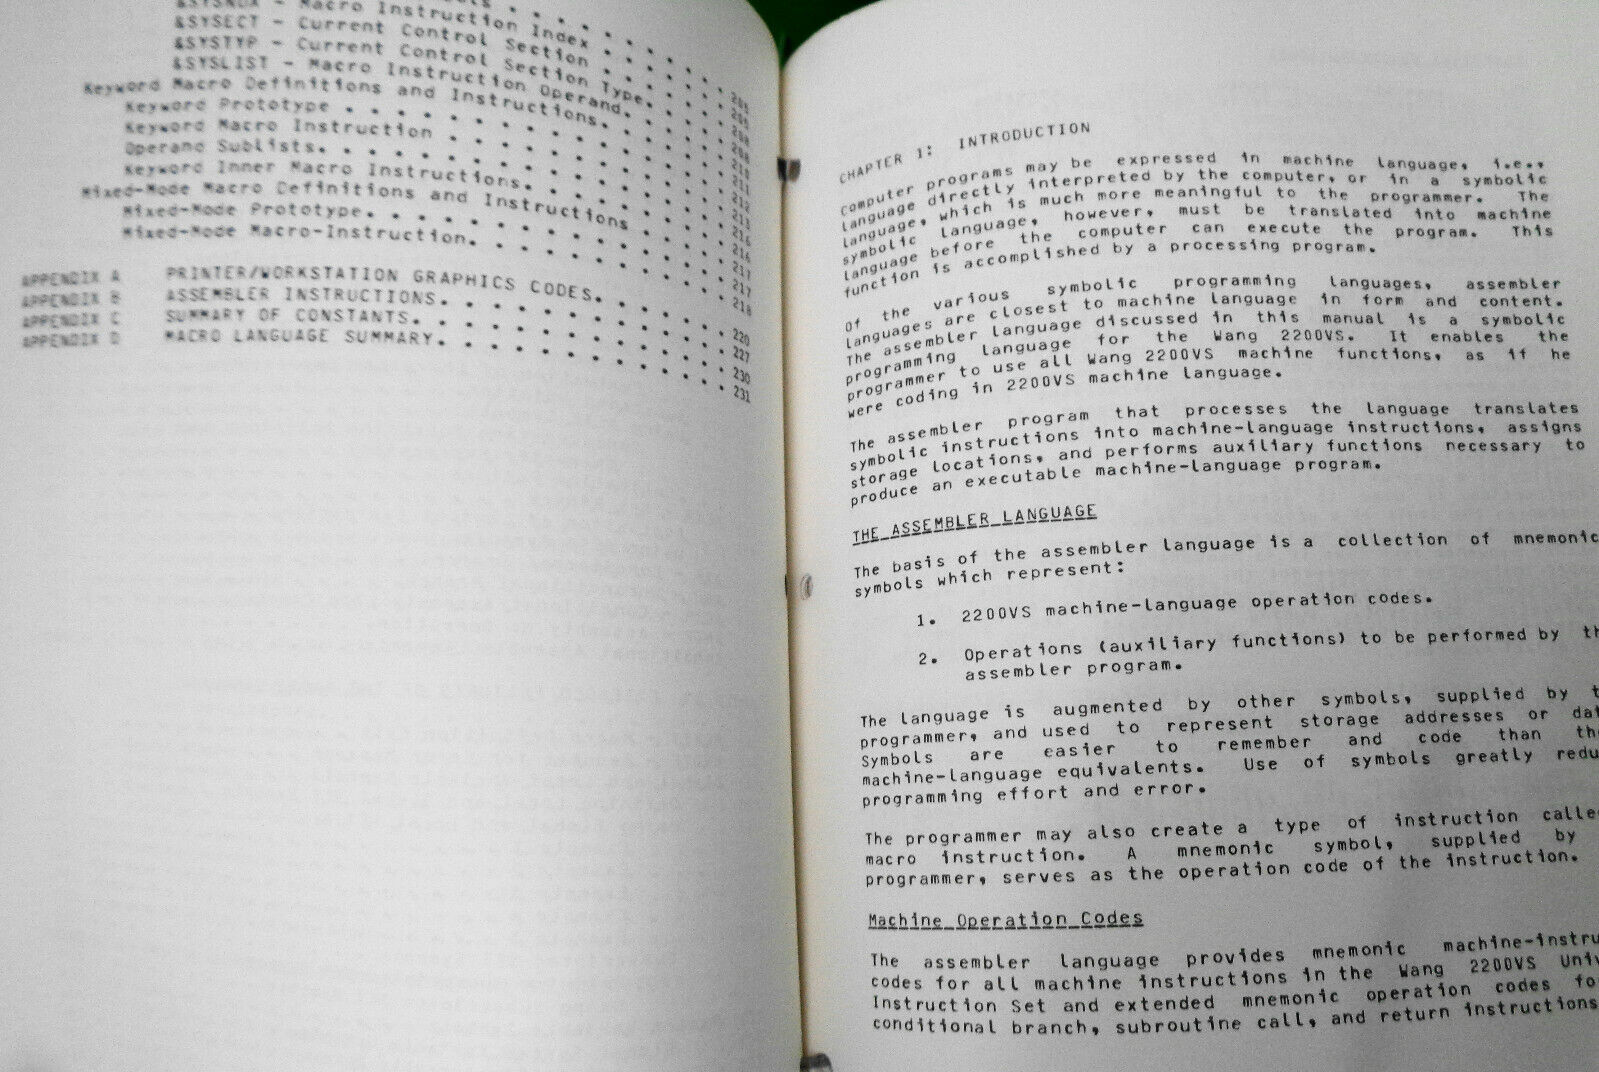 &SYSNDX - Macro Instruction Index . . . . . . .
&SYSECT - Current Control Section . . . . . . . 205
&SYSTYP - Current Control Section Type. . . . . 205
&SYSLIST - Macro Instruction Operand. . . . . . 208
Keyword Macro Definitions and Instructions. . . . . . 208
Keyword Prototype . . . . . . . . . . . . 210
Keyword Macro Instruction . . . . . . . . . . 211
Operand Sublists. . . . . . . . . . . . . 212
Keyword Inner Macro Instructions. . . . . . . . 213
Mixed-Mode Macro Definitions and Instructions . . . . . 216
Mixed-Mode Prototype. . . . . . . . . . . . 216
Mixed-Mode Macro-Instruction. . . . . . . . . 217
217
218
APPENDIX A PRINTER/WORKSTATION GRAPHICS CODES. . . . . . .
APPENDIX B ASSEMBLER INSTRUCTIONS. . . . . . . . . . . 220
APPENDIX C SUMMARY OF CONSTANTS. . . . . . . . . . . . 227
APPENDIX D MACRO LANGUAGE SUMMARY. . . . . . . . . . . 230
231
CHAPTER 1: INTRODUCTION
Computer programs may be expressed in machine language, i.e.,
language directly interpreted by the computer, or in a symbolic
language, which is much more meaningful to the programmer. The
symbolic language, however, must be translated into machine
language before the computer can execute the program. This
function is accomplished by a processing program.
Of the various symbolic programming languages, assembler
languages are closest to machine language in form and content.
The assembler language discussed in this manual is a symbolic
programming language for the Wang 2200VS. It enables the
programmer to use all Wang 2200VS machine functions, as if he
were coding in 2200VS machine language.
The assembler program that processes the language translates
symbolic instructions into machine-language instructions, assigns
storage locations, and performs auxiliary functions necessary to
produce an executable machine-language program.
THE ASSEMBLER LANGUAGE
The basis of the assembler language is a collection of mnemonic
symbols which represent:
1. 2200VS machine-language operation codes.
2. Operations (auxiliary functions) to be performed by th
assembler program.
The language is augmented by other symbols, supplied by t
programmer, and used to represent storage addresses or dat
Symbols are easier to remember and code than the
machine-language equivalents. Use of symbols greatly redu
programming effort and error.
The programmer may also create a type of instruction calle
macro instruction. A mnemonic symbol, supplied by
programmer, serves as the operation code of the instruction.
Machine Operation Codes
The assembler language provides mnemonic machine-instru
codes for all machine instructions in the Wang 2200VS Univ
Instruction Set and extended mnemonic operation codes fo
conditional branch, subroutine call, and return instructions